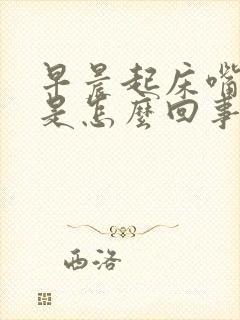 早晨起床嘴
是怎麽回事
西洛